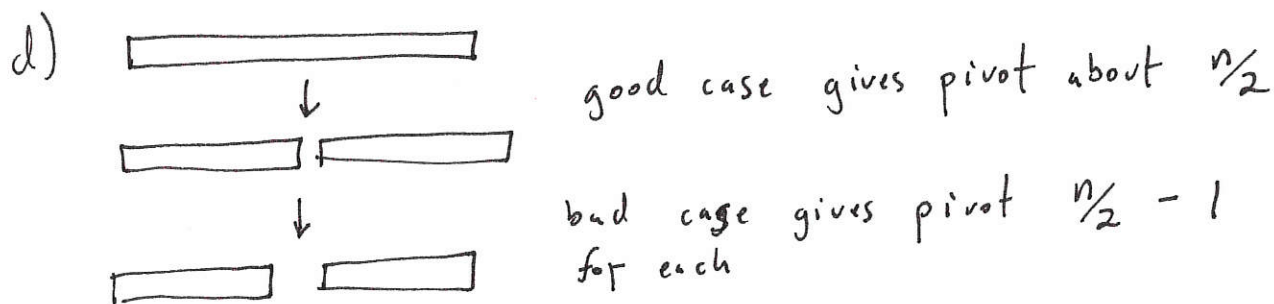 d)
good case gives pivot about n/2
bad case gives pivot n/2 - 1
for each